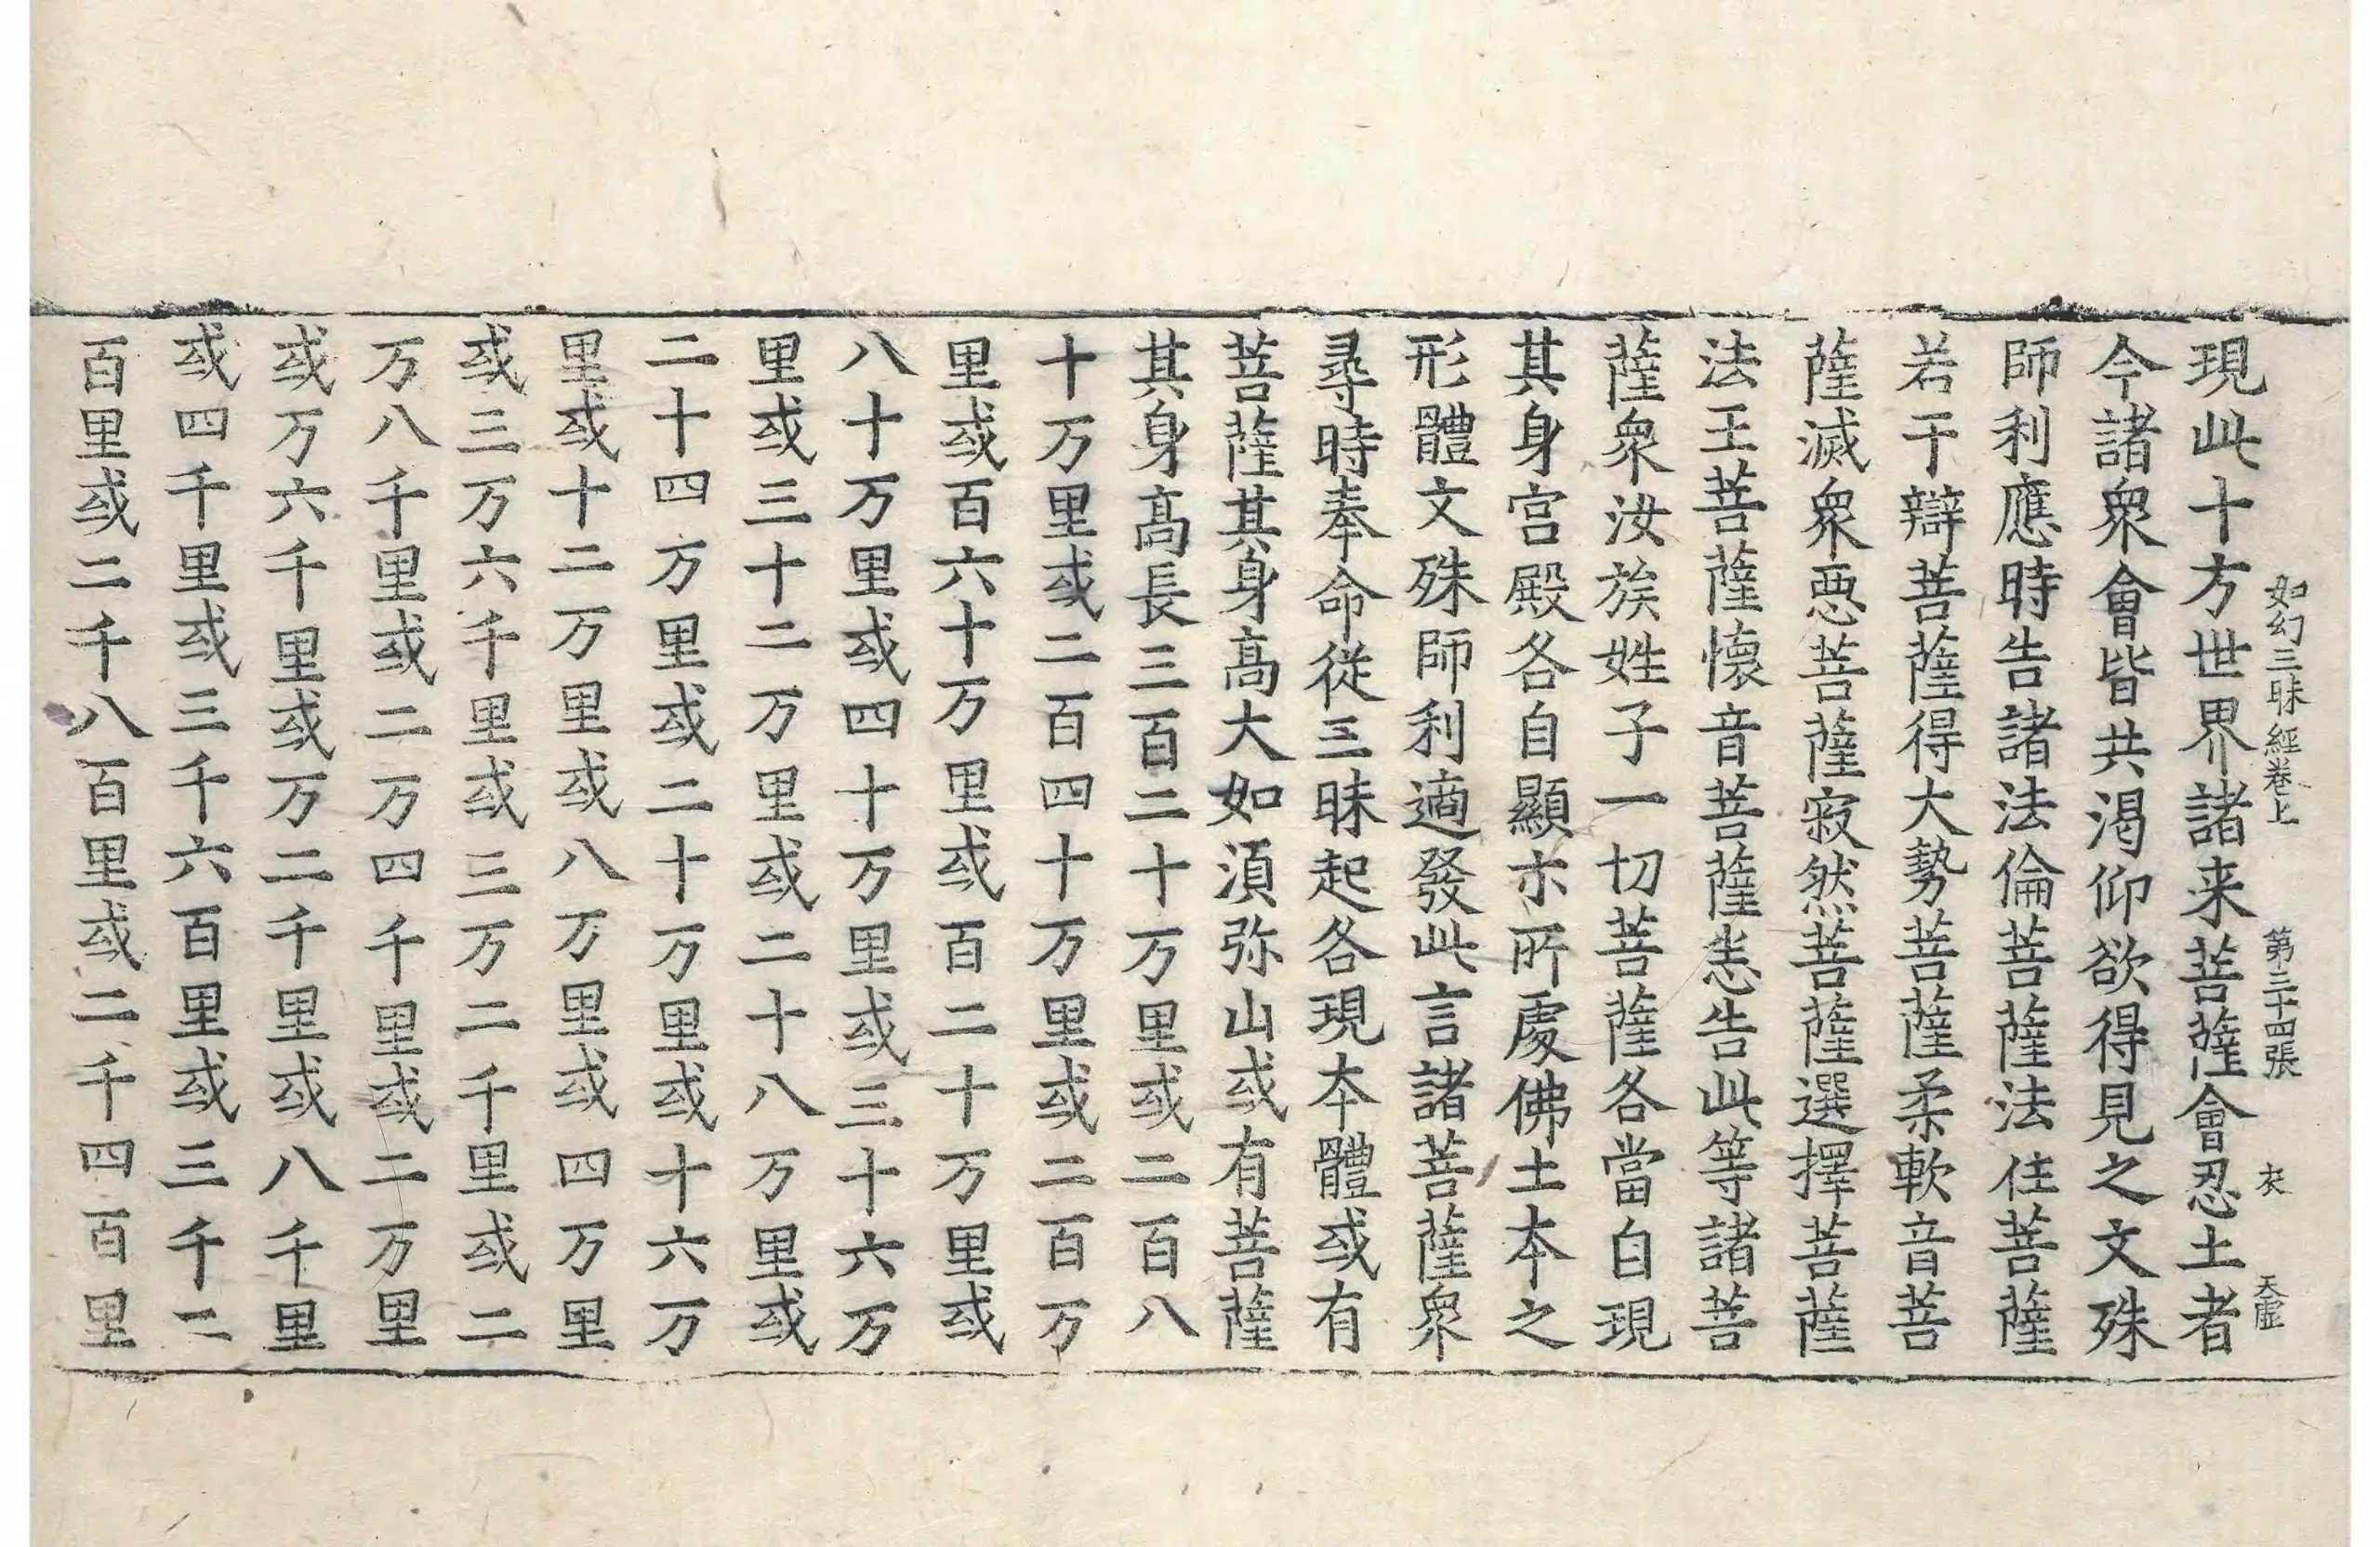 如幻三昧經卷上 第三十四張 衣 天匨
現此十方世界諸来菩薩會忍土者
今諸衆會皆共渴仰欲得見之文殊
師利應時告諸法倫菩薩法住菩薩
若干辯菩薩得大勢菩薩柔軟音菩
薩滅衆惡菩薩寂然菩薩選擇菩薩
法王菩薩懷音菩薩恙告此等諸菩
薩衆汝族姓子一切菩薩各當自現
其身宫殿各自顯示所處佛土本之
形體文殊師利適發此言諸菩薩衆
尋時奉命從三昧起各現本體或有
菩薩其身高大如須弥山或有菩薩
其身高長三百二十万里或二百八
十万里或二百四十万里或二百万
里或百六十万里或百二十万里或
八十万里或四十万里或三十六万
里或三十二万里或二十八万里或
二十四万里或二十万里或十六万
里或十二万里或八万里或四万里
或三万六千里或三万二千里或二
万八千里或二万四千里或二万里
或万六千里或万二千里或八千里
或四千里或三千六百里或三千二
百里或二千八百里或二千四百里